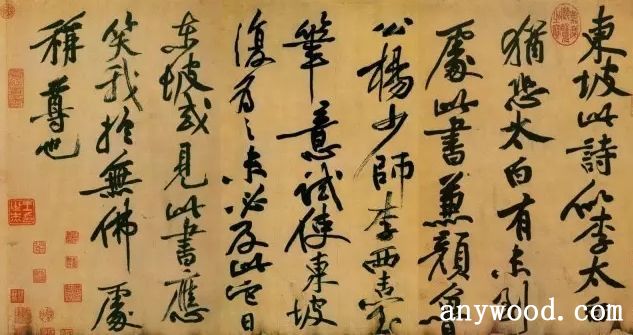 東坡此詩似李太白
猶恐太白有未到
處此書兼顏魯
公楊少師李西臺
筆意試使東坡
復為之未必及此它日
東坡或見此書應
笑我於無佛處
稱尊也
anywood.com